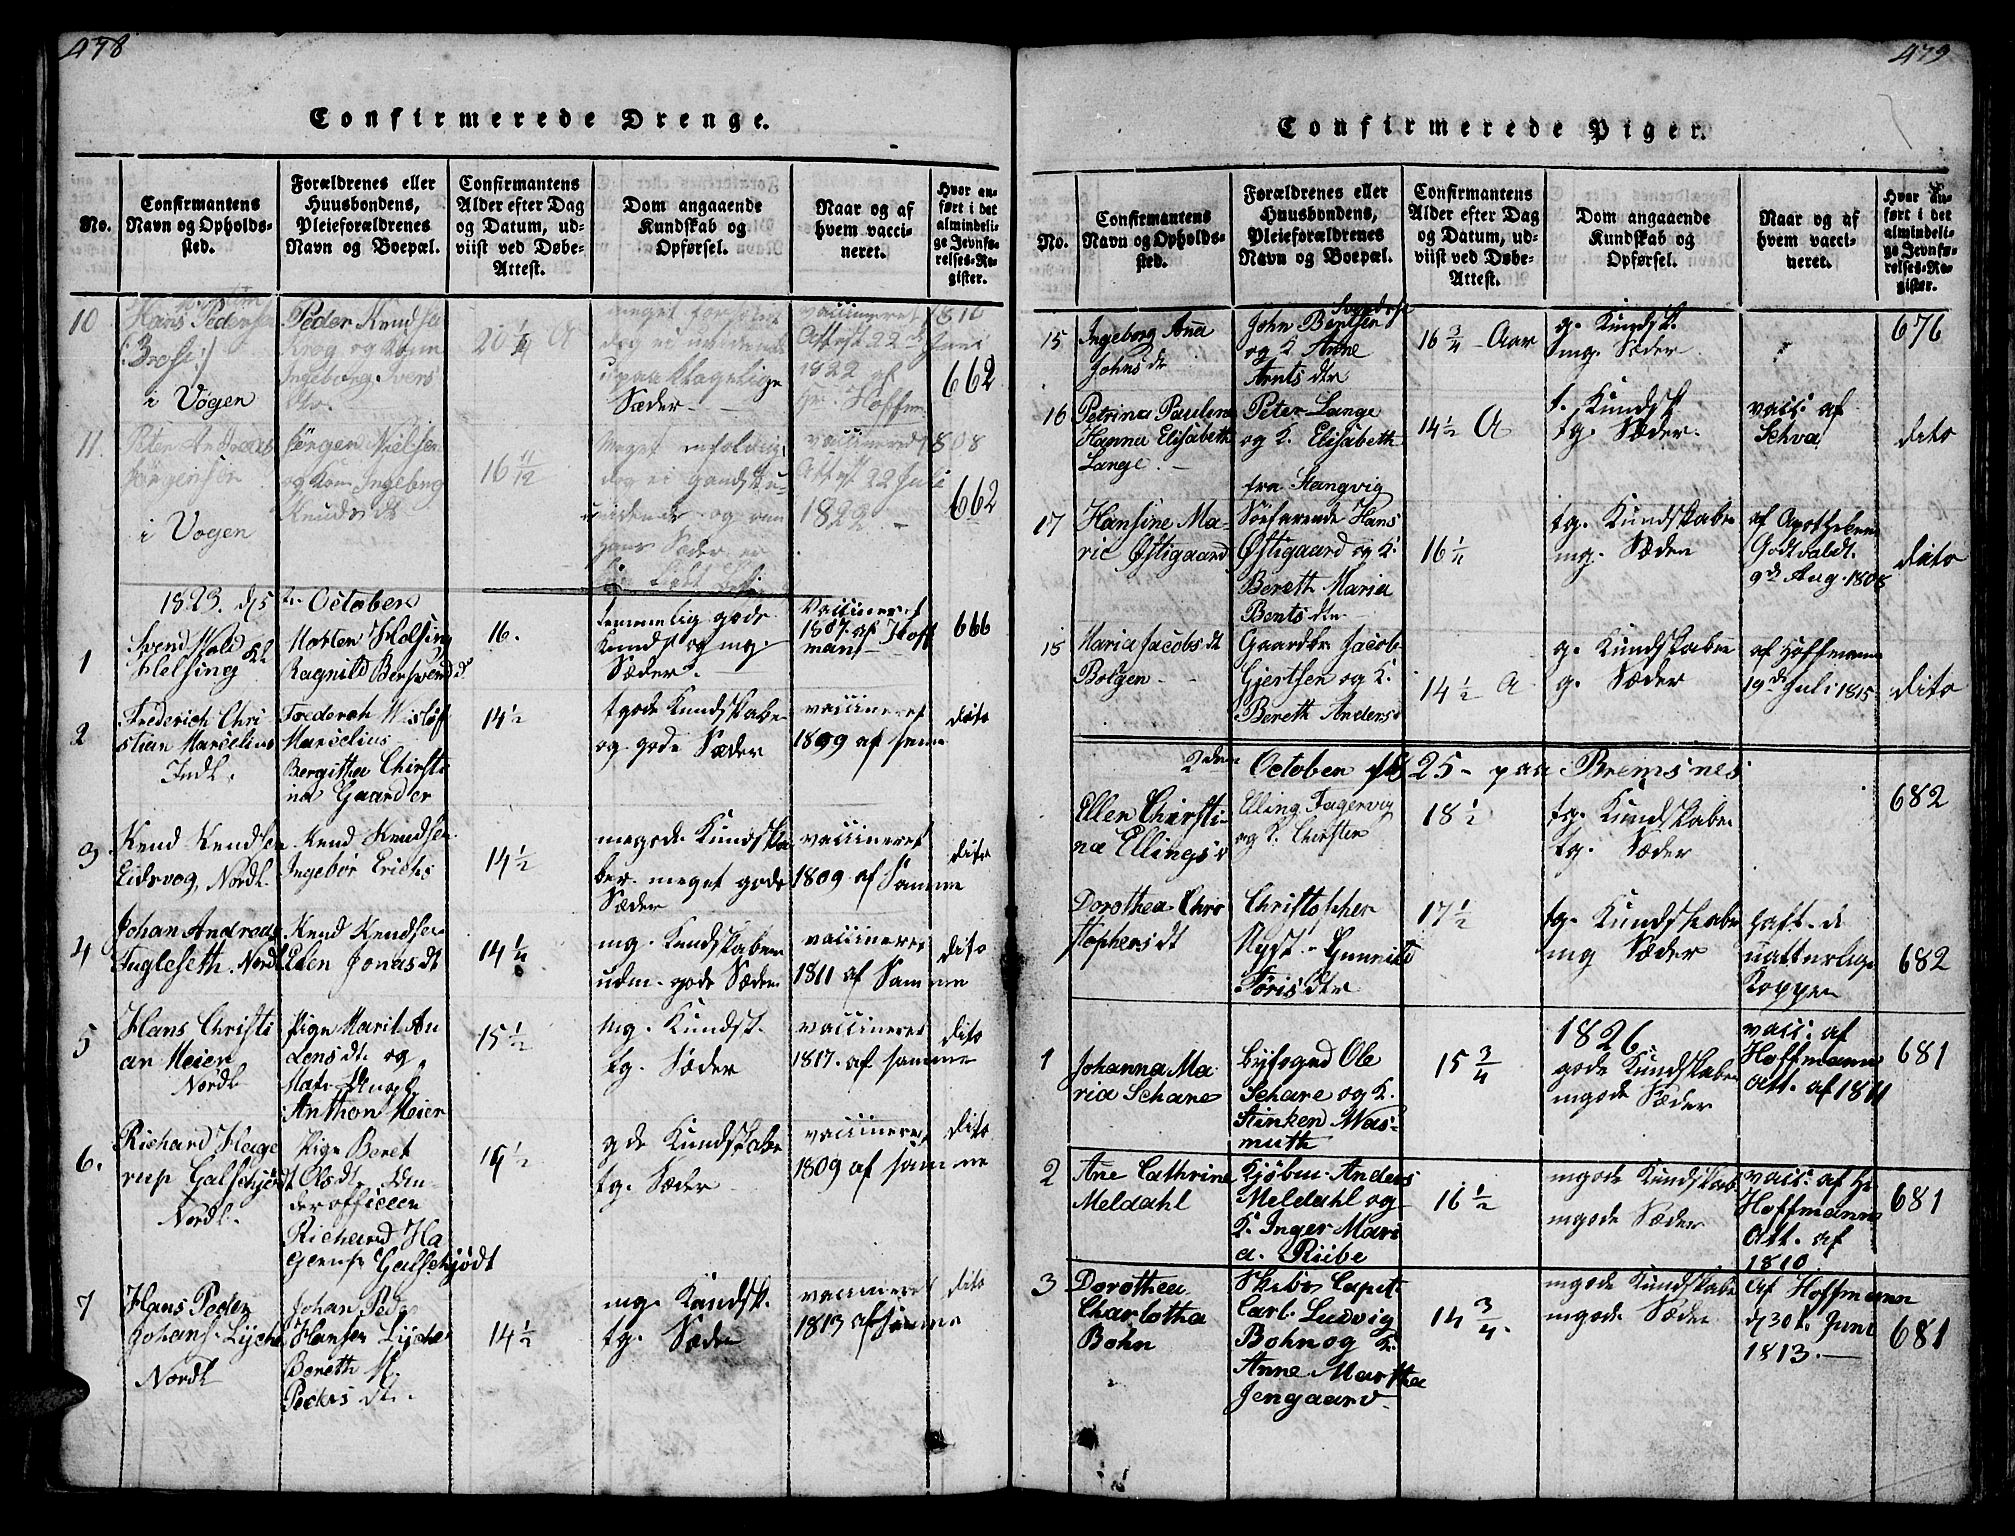 478
Confirmerede Drenge.
No.
Confirmantens
Navn og Opholds-
sted.
Forældrenes eller
Huusbondens,
Pleieforældrenes
Navn og Boepæl.
Confirmantens
Alder efter Dag
og Datum, ud-
viist ved Døbe-
Attest.
Dom angaaende
Kundskab og
Opførsel.
Naar og af
hvem vacci-
neret.
Hvor an-
ført i det
almindeli-
ge Jevnfø-
relses-Re-
gister.
10
Hans Pedersen
i Vogen
Peder Knudse
Krog og Kone
Ingeborg Ivers
dtr.
20 1/4 A
dog ei
upaaklagelige
Sæder
vaccineret 1816
Attest 22de Juni
1822 af
Hr. Hoffm.
662
11.
Peter Andreas
Jörgensen
i Vogen
Jörgen Nielsen
og Kone Ingeborg
Knuds dt
16 11/12
Meget enfoldig
dog ei gandske u-
vidende og
hans Sæder er
vaccineret 1808
Attest 22 Juli
1822
662
1823. d 5te October
1
Svend Wold Kl
Helsing
Morten Holsing
Ragnild Berswend d
16.
temmelig gode
Kundsk og mg.
Sæder.
Vaccineret
1807. af Hoff
man
666
2
Frederich Chri
stian Marcelius
Indl.
Frederch Wisløf
Marcelius
Bergitha Christi
na Gaarder
14 1/2
tgode Kundskaber
og gode Sæder
vaccineret
1809 af samme
dito
3
Knud Knudsen
Eidsvog, Nordl.
Knud Knudsen
Ingebor Erichs
14 1/2
megode Kundska
ber meget gode
Sæder
vaccineret
1809 af Samme
dito
4
Johan Andreas
Fugleseth. Nordl
Knud Knudsen
Elen Jonas dt
14 1/4
mg. Kundskaber
udm. gode Sæder
vaccineret
1811 af Samme
dito
5
Hans Christi
an Meier
Nordl
Pige Marit An
dens dt. og
Anthon Meier
15 1/2
Mg. Kundsk.
tg. Sæder
vaccineret
1817. af samme
dito
6.
Richard Hage
rup Galschjødt
Nordl.
Pige Beret
Olsdt. Un-
derofficeer
Richard Ha
gerup Galschjødt
19 1/2
gde Kundskabe
tg. Sæder
vaccineret
1809 af samme
dito
7
Hans Peder
Johans. Lyche
Nordl
Johan Peder
Hansen Lyche
Bereth M.
Peders dt.
14 1/2
mg. Kundsk.
tg. Sæder
vaccineret
1813 af samme
dito
479
Confirmerede Piger.
No.
Confirmantens
Navn og Opholds-
sted.
Forældrenes eller
Huusbondens,
Pleieforældrenes
Navn og Boepæl.
Confirmantens
Alder efter Dag
og Datum, ud-
viist ved Døbe-
Attest.
Dom angaaende
Kundskab og
Opførsel.
Naar og af
hvem vacci-
neret.
Hvor an-
ført i det
almindeli-
ge Jevnfø-
relses-Re-
gister.
15
Ingeborg Ana
Johns dr
John Bentsen
og K. Anne
Arnts dtr
16 3/4 - Aar
g. Kundsk.
mg. Sæder
676
16
Petrina Pauline
Hanna Elisabeth
Lange.
Peter Lange
og K. Elisabeth
fra Stangvig
14 1/2 A
t. Kundsk
tg. Sæder.
vacc: af
Schva
dito
17
Hansine Ma-
rie Østigaard
Söefarende Hans
Østigaard og K.
Bereth Maria
Bents dtr
16 1/4
tg. Kundskaber
mg. Sæder
af Apotheker
Godtfaldt.
9de Aug. 1808
dito
18
Maria Jacobs dt
Bolgen
Gaardbr Jacob
Gjertsen og K.
Bereth Anders d
14 1/2 A
g. Kundskaber
g. Sæder
af Hoffmann
19de Juli 1815
dito
2den October 1825 - paa Bremsnes
Ellen Christi-
na Ellings d
Elling Fagervig
og K. Chirsten
18 1/2
tg. Kundskaber
tg. Sæder
682
Dorothea Chri
stophers dt
Christopher
Nyst. Gunnild
Toris dtr
17 1/2
tg. Kundskaber
mg Sæder
haft. de
naturlige
Kopper
682
1826.
1
Johanna Ma
ria Schare
Byfoged Ole
Schare og K.
Stinken Was-
muth
15 3/4
gode Kundskaber
mgode Sæder
vacc: af
Hoffmann
Att. af 1811
681
2
Ane Cathrine
Meldahl
Kjøbm. Anders
Meldahl og
K. Inger Mari
a. Riibe
16 1/2
mgode Kundskab
mgode Sæder
vacc: af Hr
Hoffmann
Att. af
1810
681
3
Dorothea
Charlotha
Bohn
Skibs Capit.
Carl Ludvig
Bohn og K.
Anne Martha
Jengaard
14 3/4.
mgode Kundskabe
mgode Sæder
af Hoffmann
d 30te Juni
1813.
681